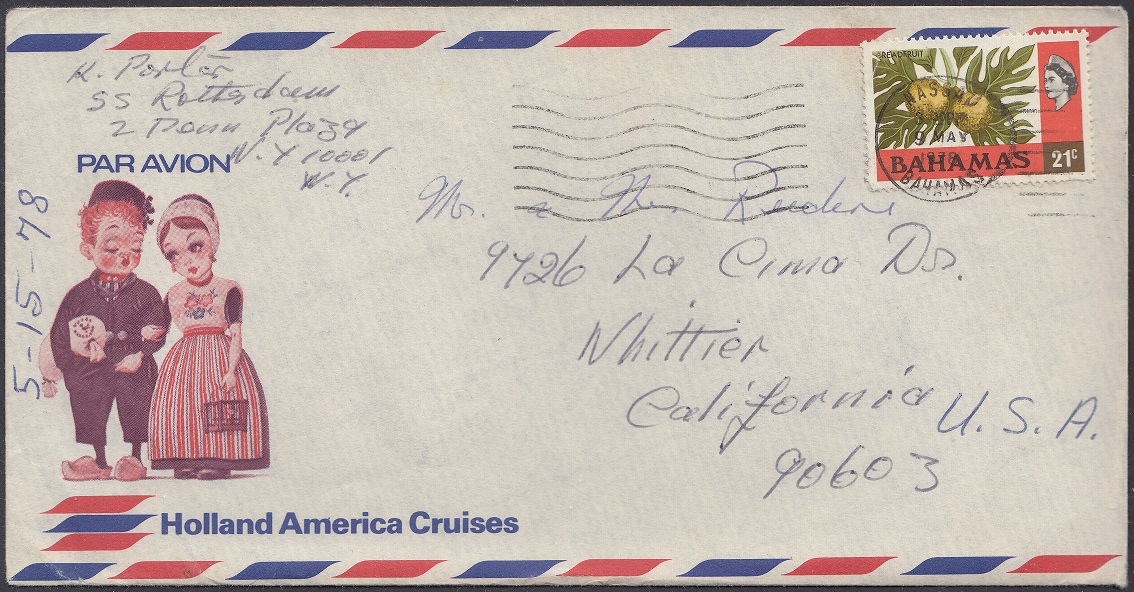 K. Porter
SS Rotterdam
2 Penn Plaza
N.Y 10001
N.Y.
PAR AVION
5-15-78
BREADFRUIT
NASSAU
9 MAY
1978
BAHAMAS
BAHAMAS
21c
Mr. & Mrs
9726 La Cima Dr.
Whittier
California U.S.A.
90603
Holland America Cruises